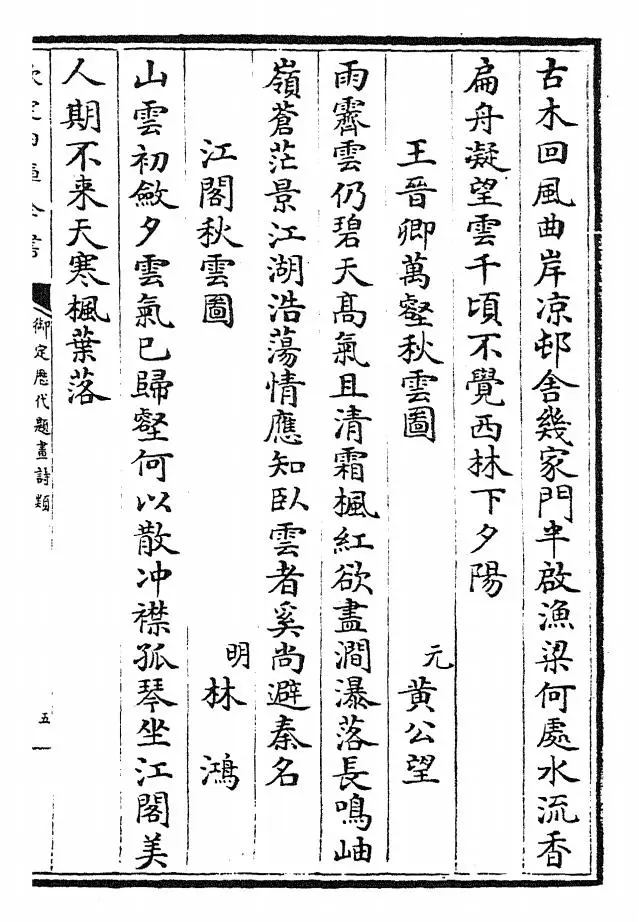 古木回風曲岸凉邨舍幾家門半啟漁梁何處水流香
扁舟凝望雲千頃不覺西林下夕陽
王晉卿萬壑秋雲圖 元 黄公望
雨霽雲仍碧天髙氣且清霜楓紅欲盡澗瀑落長鳴岫
嶺蒼茫景江湖浩蕩情應知卧雲者奚尚避秦名
江閣秋雲圖 明 林鴻
山雲初斂夕雲氣已歸壑何以散冲襟孤琴坐江閣美
人期不来天寒楓葉落
御定歷代題畫詩類
五